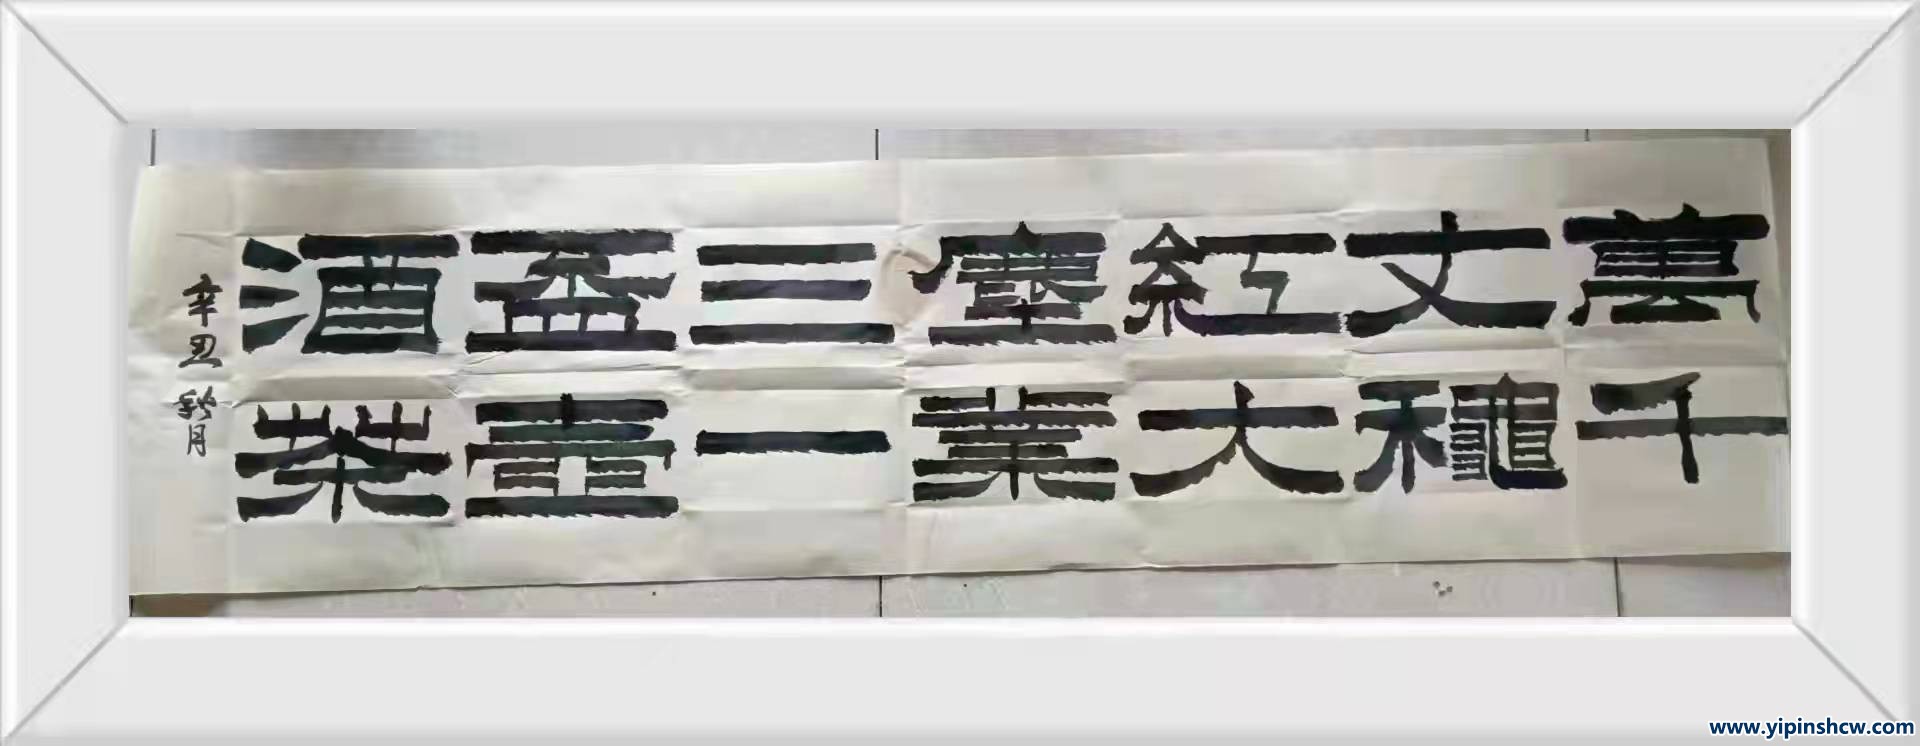 萬丈紅塵三盃酒
千龝大業一壺茶
辛丑秋月
www.yipinshcw.com